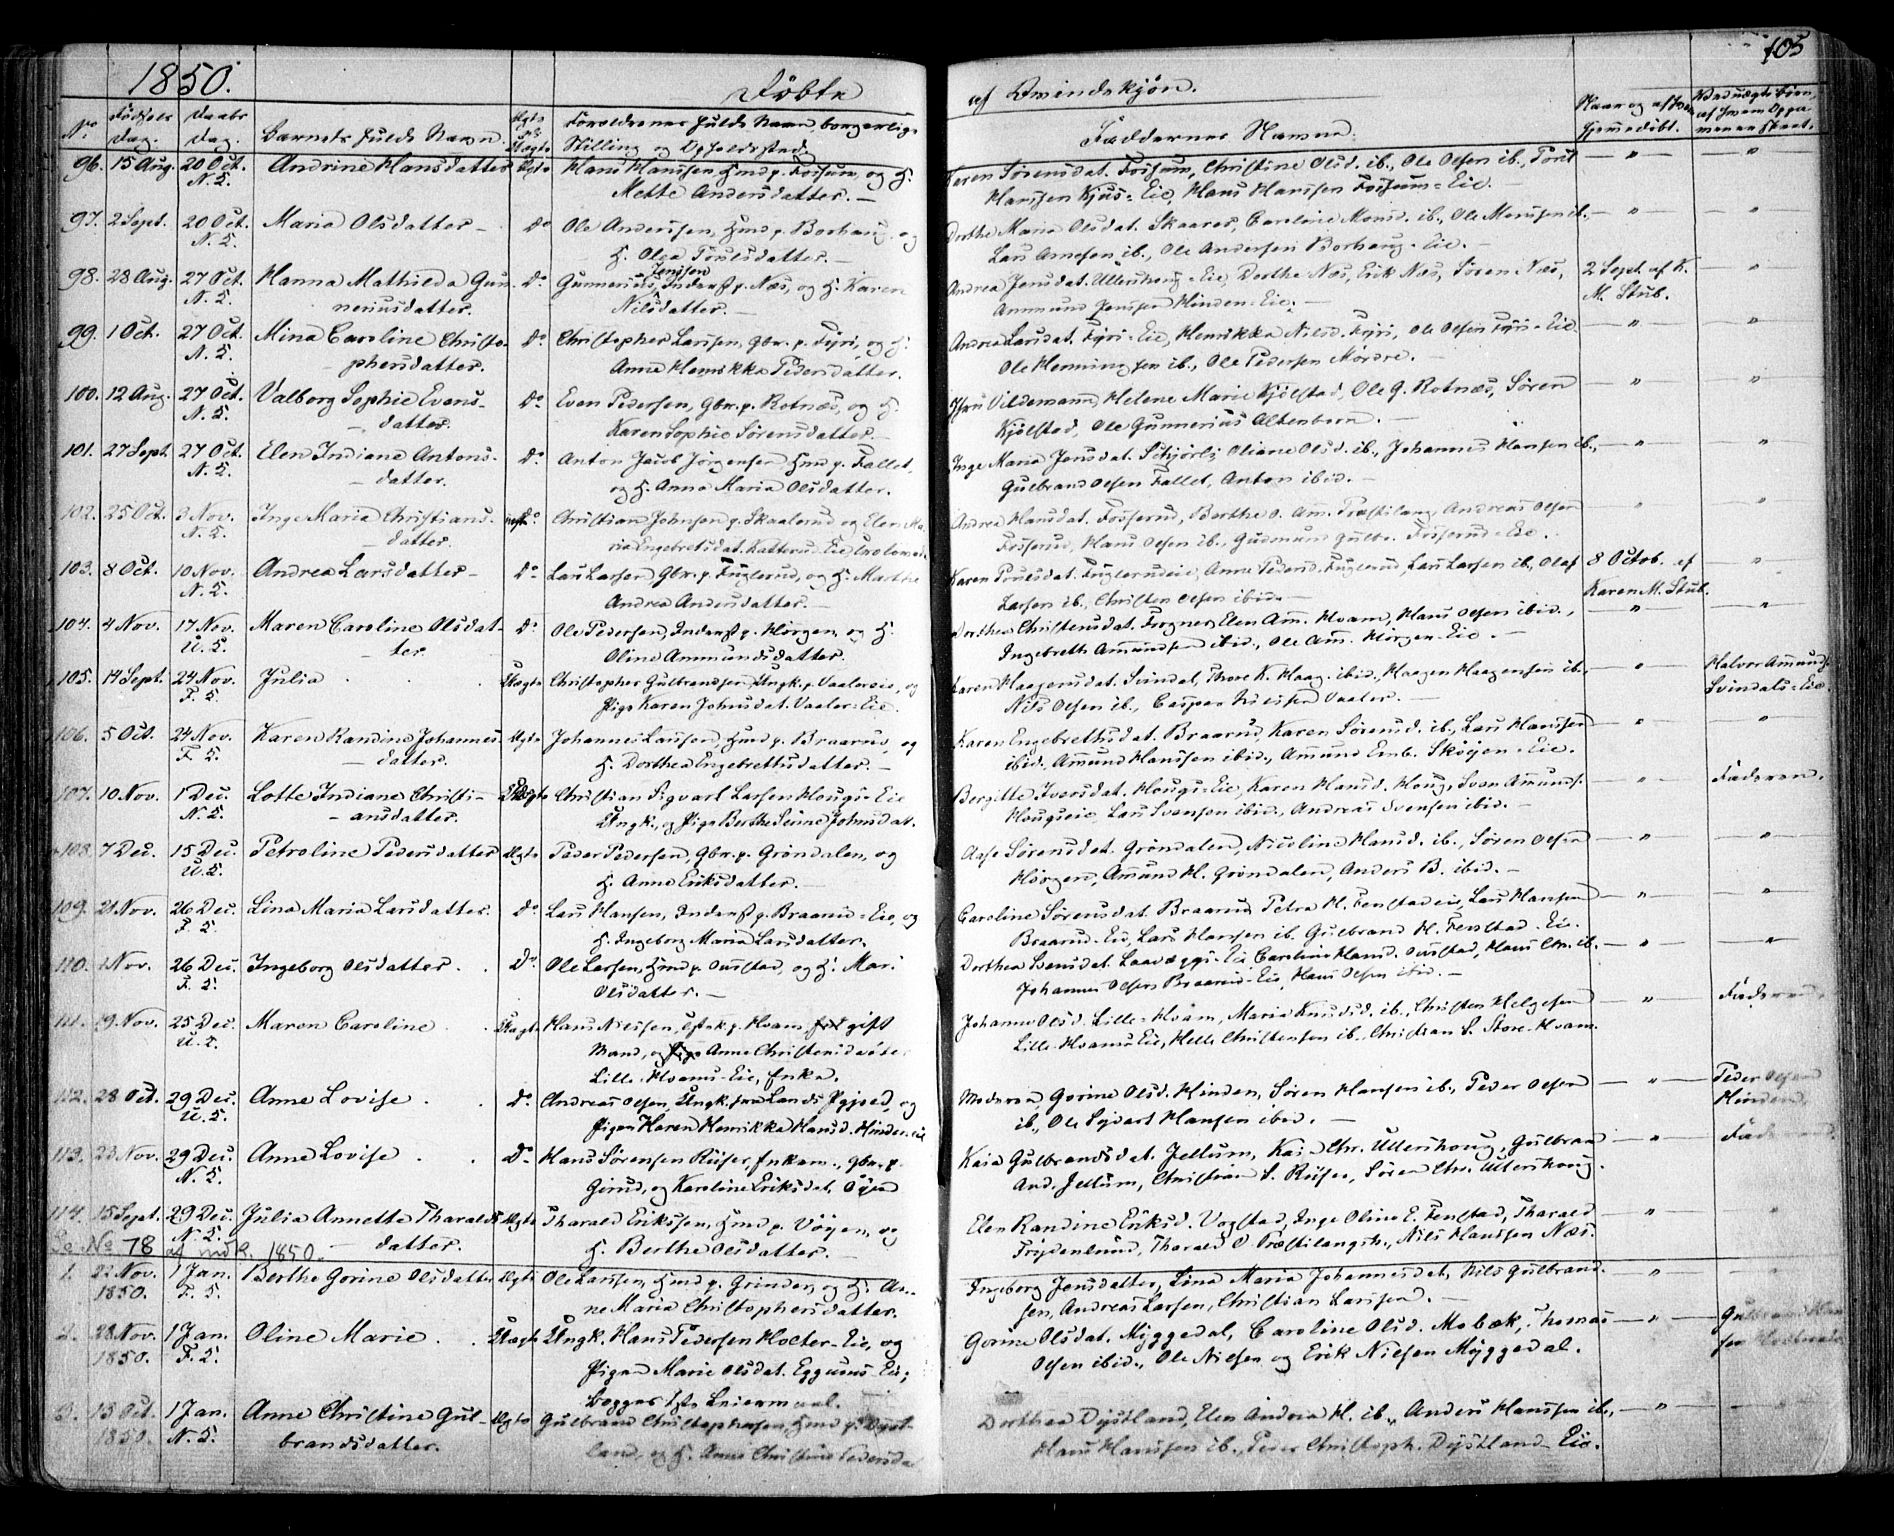 1850. Døbte
af Qvindekjøn. 105
No Fødsels dag. Daabs dag. Barnets fulde Navn. Ægte ell. Uægte Forældrenes fulde Navn, borgerlige Stilling og Opholdssted.
Faddernes Navne. Naar og af hvem hjemmedøbt.
96. 15 Aug. 20 Oct. Andrine Hansdatter Ægte Hans Hanssen Hmd p. Fossum, og H.
N. K. Mette Andersdatter. —
Sørensdat. Fossum, Christine Olsd. ib., Ole Olsen ib.,
Hanssen Kjus-Eie, Hans Hanssen Fossum-Eie. —
97. 2 Sept. 20 Oct. Maria Olsdatter — Do Ole Anderssen, Hmd p. Borhaug, og
N. K. H. Olea Poulsdatter. —
Dorthe Maria Olsdat. Skaarer, Caroline Monsd. ib., Ole Monssen ib.
Lars Arnesen ib., Ole Andersen Borhaug-Eie. —
98. 28 Aug. 27 Oct. Hanna Mathilda Gun- Do Gunnerius Jenssen, Inderst p. Næs, og H. Karen
N. K. neriusdatter. Nilsdatter. —
Andrea Jensdat. Ullershoug-Eie, Dorthe Næs, Erik Næs, Søren Næs, 2 Sept. af K.
Ammund Jenssen Hinden-Eie. — M. Stub.
99. 1 Oct. 27 Oct. Mina Caroline Christo- Do Christopher Larssen, Gbr. p. Fyri, og H.
N. K. phersdatter. Anne Henrikka Pedersdatter.
Andrea Larsdat. Fyri-Eie, Henrikka Nilsd. Fyri, Ole Olsen Fyri-Eie
Ole Henningsen ib., Ole Pedersen Mordre. —
100. 12 Aug. 27 Oct. Valborg Sophie Evens- Do Even Pedersen, Gbr. p. Rotnæs, og H.
N. K. datter. Karen Sophie Sørensdatter. —
Vildemann, Helene Marie Kjølstad, Ole G. Rotnæs, Søren
Kjølstad, Ole Gunnerius Altenborn. —
101. 27 Sept. 27 Oct. Elen Indiane Antons- Do Anton Jacob Jørgensen Hmd p. Fallet,
N. K. datter. og H. Anne Maria Olsdatter.
Inge Maria Jensdat. Oliane Olsd. ib., Johannes Hansen ib.,
Gulbrand Olsen Fallet, Anton ibid. —
102. 25 Oct. 3 Nov. Inge Maria Christians- Christian Johnsen p. Skaalerud og Elen Ma-
N. K. datter. ria Engebretsdat.
Andrea Hansdat. Fosserud, Berthe O. Am. Præstlang. Andreas Olsen
Fosserud, Hans Olsen ib., Gudmund Gulbr. Fosserud-Eie.
103. 8 Oct. 10 Nov. Andrea Larsdatter — Do Lars Larsen, Gbr. p. Fuglerud, og H. Marthe
N. K. Andrea Andersdatter. —
Karen Poulsdat. Fuglerudeie, Anne Pedersd. Fuglerud, Lars Larsen ib., Olaf 8 Octob. af
Larsen ib., Christen Olsen ibid. — Karen M. Stub.
104. 4 Nov. 17 Nov. Maren Caroline Olsdat- Do Ole Pedersen, Inderst p. Horgen, og H.
U. K. ter. Oline Ammundsdatter.
Dorthea Christensdat. Frogner, Elen Am. Hvam, Hans Olsen ibid.,
Ingebreth Amundsen ibid., Ole Am. Horgen-Eie. —
105. 14 Sept. 24 Nov. Julia Uægte Christopher Gulbrandsen, Ungk. p. Vaalereie, og
F. K. Pige Karen Johnsdat. Vaaler-Eie.
Karen Haagensdat. Svindal, Thore K. Haag. ibid., Haagen Haagensen ib., Halvor Amunds.
Nils Olsen ib., Casper Nielsen Vaaler. — Svindals-Eie.
106. 5 Oct. 24 Nov. Karen Randine Johannes- Ægte Johannes Larssen, Hmd p. Braarud, og
F. K. datter. H. Dorthea Engebrethsdatter. —
Karen Engebrethsdat. Braarud, Karen Sørensd. ib., Lars Hanssen
ibid., Amund Hanssen ibid., Amund Emb. Skøjen-Eie.
107. 10 Nov. 1 Dec. Lotte Indiane Christi- Uægte Christian Sigvart Larsen Hougs-Eie
N. K. ansdatter. Ungk., og Pige Berthe Johnsdat.
Bergitte Iversdat. Hougs-Eie, Karen Hansd. Houg, Sven Amunds. Faderen.
Hougseie, Lars Svensen ibid., Andreas Svensen ibid. —
108. 7 Dec. 15 Dec. Petroline Pedersdatter Ægte Peder Pedersen, Gbr. p. Grøndalen, og
U. K. H. Anne Eriksdatter. —
Aase Sørensdat. Grøndalen, Nicoline Hansd. ib., Søren Olsen
Horgen, Amund H. Grøndalen, Anders B. ibid. —
109. 21 Nov. 26 Dec. Lina Maria Larsdatter. Do Lars Hansen, Inderst p. Braarud-Eie, og
F. K. H. Ingeborg Maria Larsdatter.
Caroline Sørensdat. Braarud, Petra H. Fenstadeie, Lars Hanssen
Braarud-Eie, Lars Hanssen ib. Gulbrand H. Fenstad-Eie.
110. Nov. 26 Dec. Ingeborg Olsdatter. Do Ole Larsen, Hmd p. Ousstad, og H. Mari
F. K. Olsdatter. —
Dorthea Caroline Hansd. Ousstad, Hans Chr. ib.
Johannes Olsen Braarud-Eie, Hans Olsen ibid. —
111. 9 Nov. 25 Dec. Maren Caroline Uægte Hans Nielsen, p. Hvam gift
U. K. Mand, og Anne Christensdatter
Lille-Hvams-Eie, Enke.
Johanne Olsd. Lille-Hvam, Maria Knudsd. ib., Christen Helgesen Faderen.
Lille-Hvams Eie, Helle Christensen ib. Christian S. Store-Hvam.
112. 28 Oct. 29 Dec. Anne Lovise Do Andreas Olsen, Ungk. fra Lands Præstegjeld, og
U. K. Pigen Karen Henrikka Hansd. Hinden-eie
Moderen Gorine Olsd. Hinden, Søren Hansen ib., Peder Olsen Peder Olsen
ib., Ole Syvert Hansen ibid. — Hinden.
113. 23 Nov. 29 Dec. Anne Lovise Do Hans Sørensen Riiser, Enkem., Gbr. p.
N. K. Girud, og Karoline Eriksdat. Øien
Kaia Gulbrandsdat. Jellum, Kaia Chr. Ullershoug, Gulbrand Faderen.
And. Jellum, Christian S. Riiser, Søren Chr. Ullershoug.
114. 15 Sept. 29 Dec. Julia Annette Tharalds- Ægte Tharald Erikssen, Hmd p. Vøyen, og
N. K. datter. H. Berthe Olsdatter. —
Elen Randine Eriksd. Vogstad, Inge Oline E. Fenstad, Tharald
Frydenlund, Tharald O. Præstlangs., Nils Hanssen Næs.
Se No 78 af mdk. 1850.
1. 22 Nov. 1 Jan. Berthe Gorine Olsdatter Ægte Ole Larssen, Hmd p. Grinder, og H. An-
1850. F. K. ne Maria Christophersdatter.
Ingeborg Jensdatter, Lina Maria Johannesdat., Nils Gulbrand-
sen, Andreas Larsen, Christian Larssen. —
2. 28 Nov. 1 Jan. Oline Marie Uægte Ungk. Hans Pedersen Holter-Eie, og
1850. F. K. Pigen Marie Olsdat. Eggums Eie;
begges 1ste Leiermaal.
Gorine Olsdat. Myggedal, Caroline Olsd. Mobæk, Thomas Gulbrand
Olsen ibid., Ole Nielsen og Erik Nielsen Myggedal.
3. 15 Oct. 1 Jan. Anne Christine Gul- Ægte Gulbrand Christophersen, Hmd p. Dyst-
1850. N. K. brandsdatter. land, og H. Anne Christine Pedersda
Dorthea Dystland, Elen Andrea H. ib., Anders Hanssen ib.,
Hans Hanssen ib., Peder Christoph. Dystland-Eie.